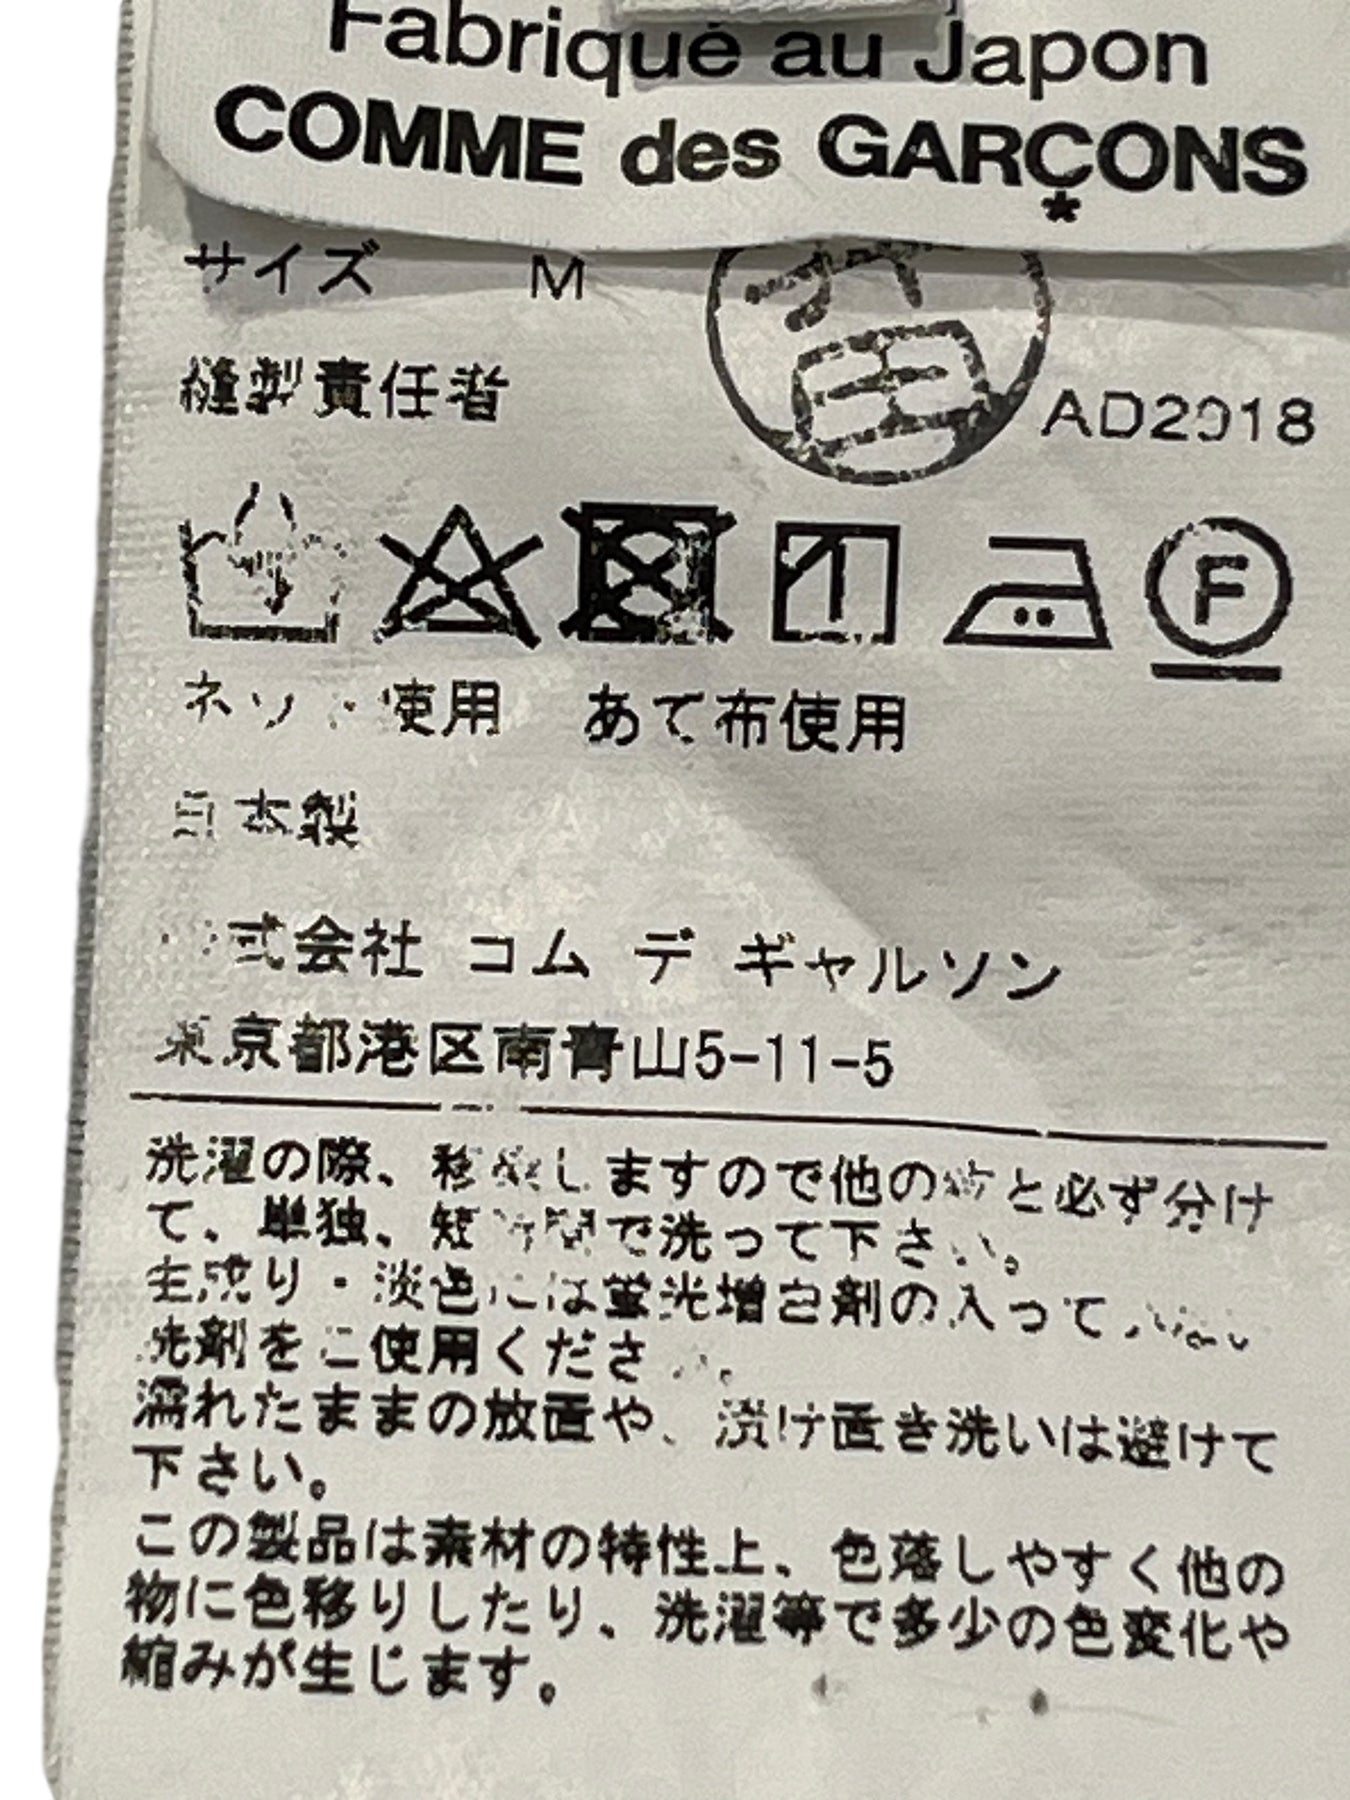 Fabriqué au Japon
COMME des GARÇONS
*
サイズ M
縫製責任者
AD2018
F
使用 あて布使用
日本製
式会社 コム デ ギャルソン
東京都港区南青山5-11-5
洗濯の際、移染しますので他の物と必ず分け
て、単独、短時間で洗って下さい。
生成り・淡色には蛍光増白剤の入って
洗剤をご使用ください。
濡れたままの放置や、漬け置き洗いは避けて
下さい。
この製品は素材の特性上、色落しやすく他の
物に色移りしたり、洗濯等で多少の色変化や
縮みが生じます。